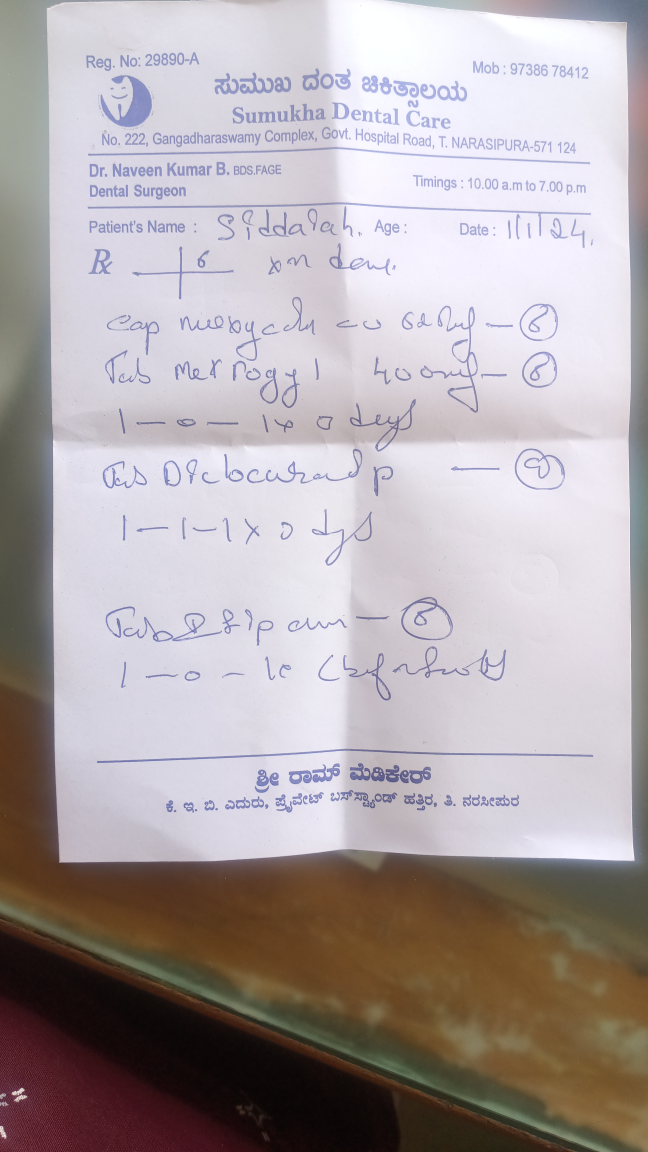 Reg. No: 29890-A
Mob : 97386 78412
ಸುಮುಖ ದಂತ ಚಿಕಿತ್ಸಾಲಯ
Sumukha Dental Care
No. 222, Gangadharaswamy Complex, Govt. Hospital Road, T. NARASIPURA-571 124
Dr. Naveen Kumar B. BDS.FAGE
Dental Surgeon
Timings : 10.00 a.m to 7.00 p.m
Patient's Name : Siddaiah. Age : Date : 1/1/24.
℞ 6
Cap
Tab Metrogyl 400mg —
1 — 0 — 1 x days
Tab p —
1 — 1 — 1 x
Tab —
1 — 0 — 1
ಶ್ರೀ ರಾಮ್ ಮೆಡಿಕೇರ್
ಕೆ. ಇ. ಬಿ. ಎದುರು, ಪ್ರೈವೇಟ್ ಬಸ್‌ಸ್ಟ್ಯಾಂಡ್ ಹತ್ತಿರ, ತಿ. ನರಸೀಪುರ